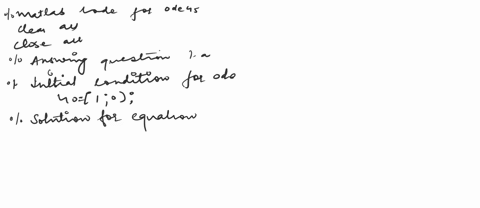 % Matlab code for ode45
clear all
close all
% Answering question 1.a
% Initial condition for ode
y0=[1;0);
% Solution for equation